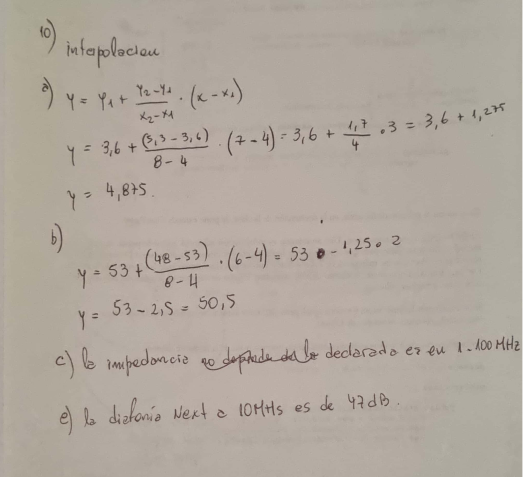 10)
interpolacion
a) y = y1 + (y2-y1)/(x2-x1) · (x-x1)
y = 3,6 + (5,3-3,6)/(8-4) · (7-4) = 3,6 + 1,7/4 · 3 = 3,6 + 1,275
y = 4,875.
b)
y = 53 + (48-53)/(8-4) · (6-4) = 53 - 1,25 · 2
y = 53 - 2,5 = 50,5
c) la impedancia declarada es en 1-100 MHz
e) la diafonía Next a 10MHs es de 47dB.